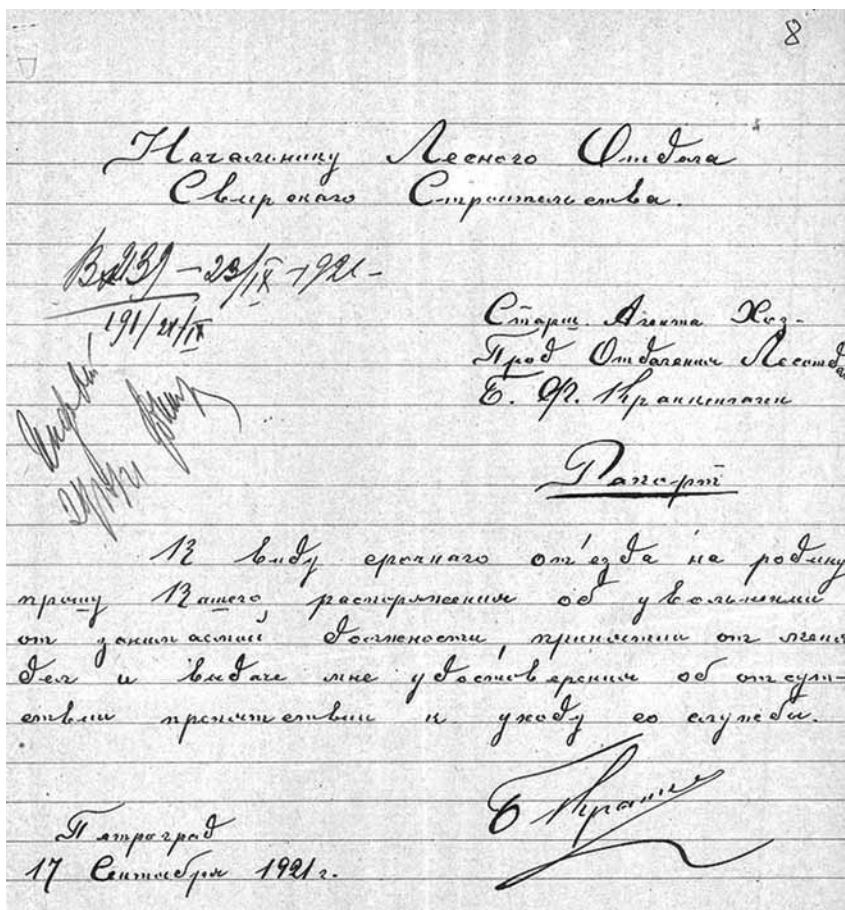 8
Начальнику Лесного Отдела
Свирскаго Строительства.
Вх 939 – 23/IX – 1921 –
191/21/IX
Старш. Агента Хоз-
Прод Отделения Лесотдела
Б. Ф.
Рапорт
В виду срочнаго от'езда на родину
прошу Вашего распоряжения об увольнении
от занимаемой должности, принятии от меня
дел и выдаче мне удостоверения об отсут-
ствии препятствий к уходу со службы.
Петроград
17 Сентября 1921 г.